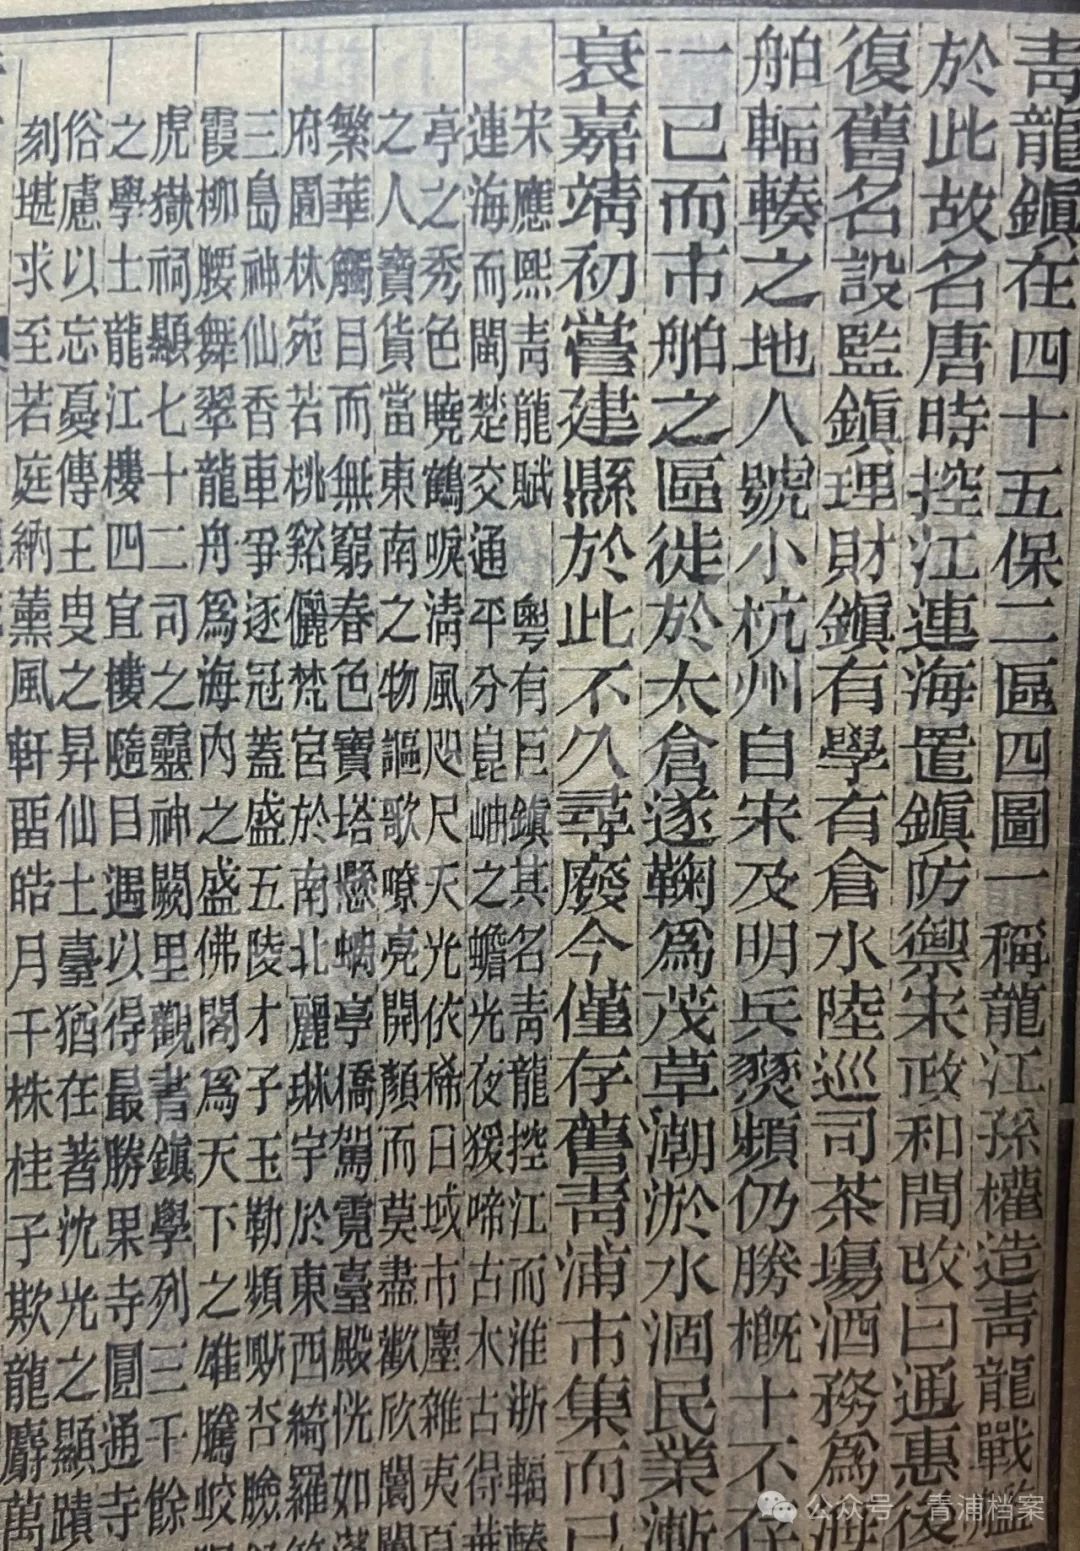 青龍鎮在四十五保二區四圖一稱龍江孫權造青龍戰艦
於此故名唐時控江連海置鎮防禦宋政和間改曰通惠後
復舊名設監鎮理財鎮有學有倉水陸巡司茶場酒務為海
舶輻輳之地人號小杭州自宋及明兵燹頻仍勝概十不存
一己而市舶之區徙於太倉遂鞠為茂草潮淤水涸民業漸
衰嘉靖初嘗建縣於此不久尋廢今僅存舊青浦市集而已
宋應熙青龍賦 粵有巨鎮其名青龍控江而淮浙輻輳
連海而閩楚交通平分崑岫之蟾光夜猨啼古木古得華
亭之秀色曉鶴唳清風咫尺天光依稀日域市廛雜夷
之人寶貨當東南之物謳歌嘹亮開顏而莫盡歡欣闤闠
繁華觸目而無窮春色寶塔懸螭亭僑駕霓臺殿恍如
府園林宛若桃谿儷梵宮於南北麗琳宇於東西綺羅
三島神仙香車爭逐冠蓋盛五陵才子玉勒頻嘶杏臉
霞柳腰舞翠龍舟為海內之盛佛閣為天下之雄騰蛟
虎嶽祠顯七十二司之靈神闕里觀書鎮學列三千餘
之學士龍江樓四宜樓隨目遇以得最勝果寺圓通寺
俗慮以忘憂傳王叟之昇仙士臺猶在著沈光之顯蹟
刻堪求至若庭納薰風軒留皓月千株桂子欺龍麝萬
公众号 · 青浦档案